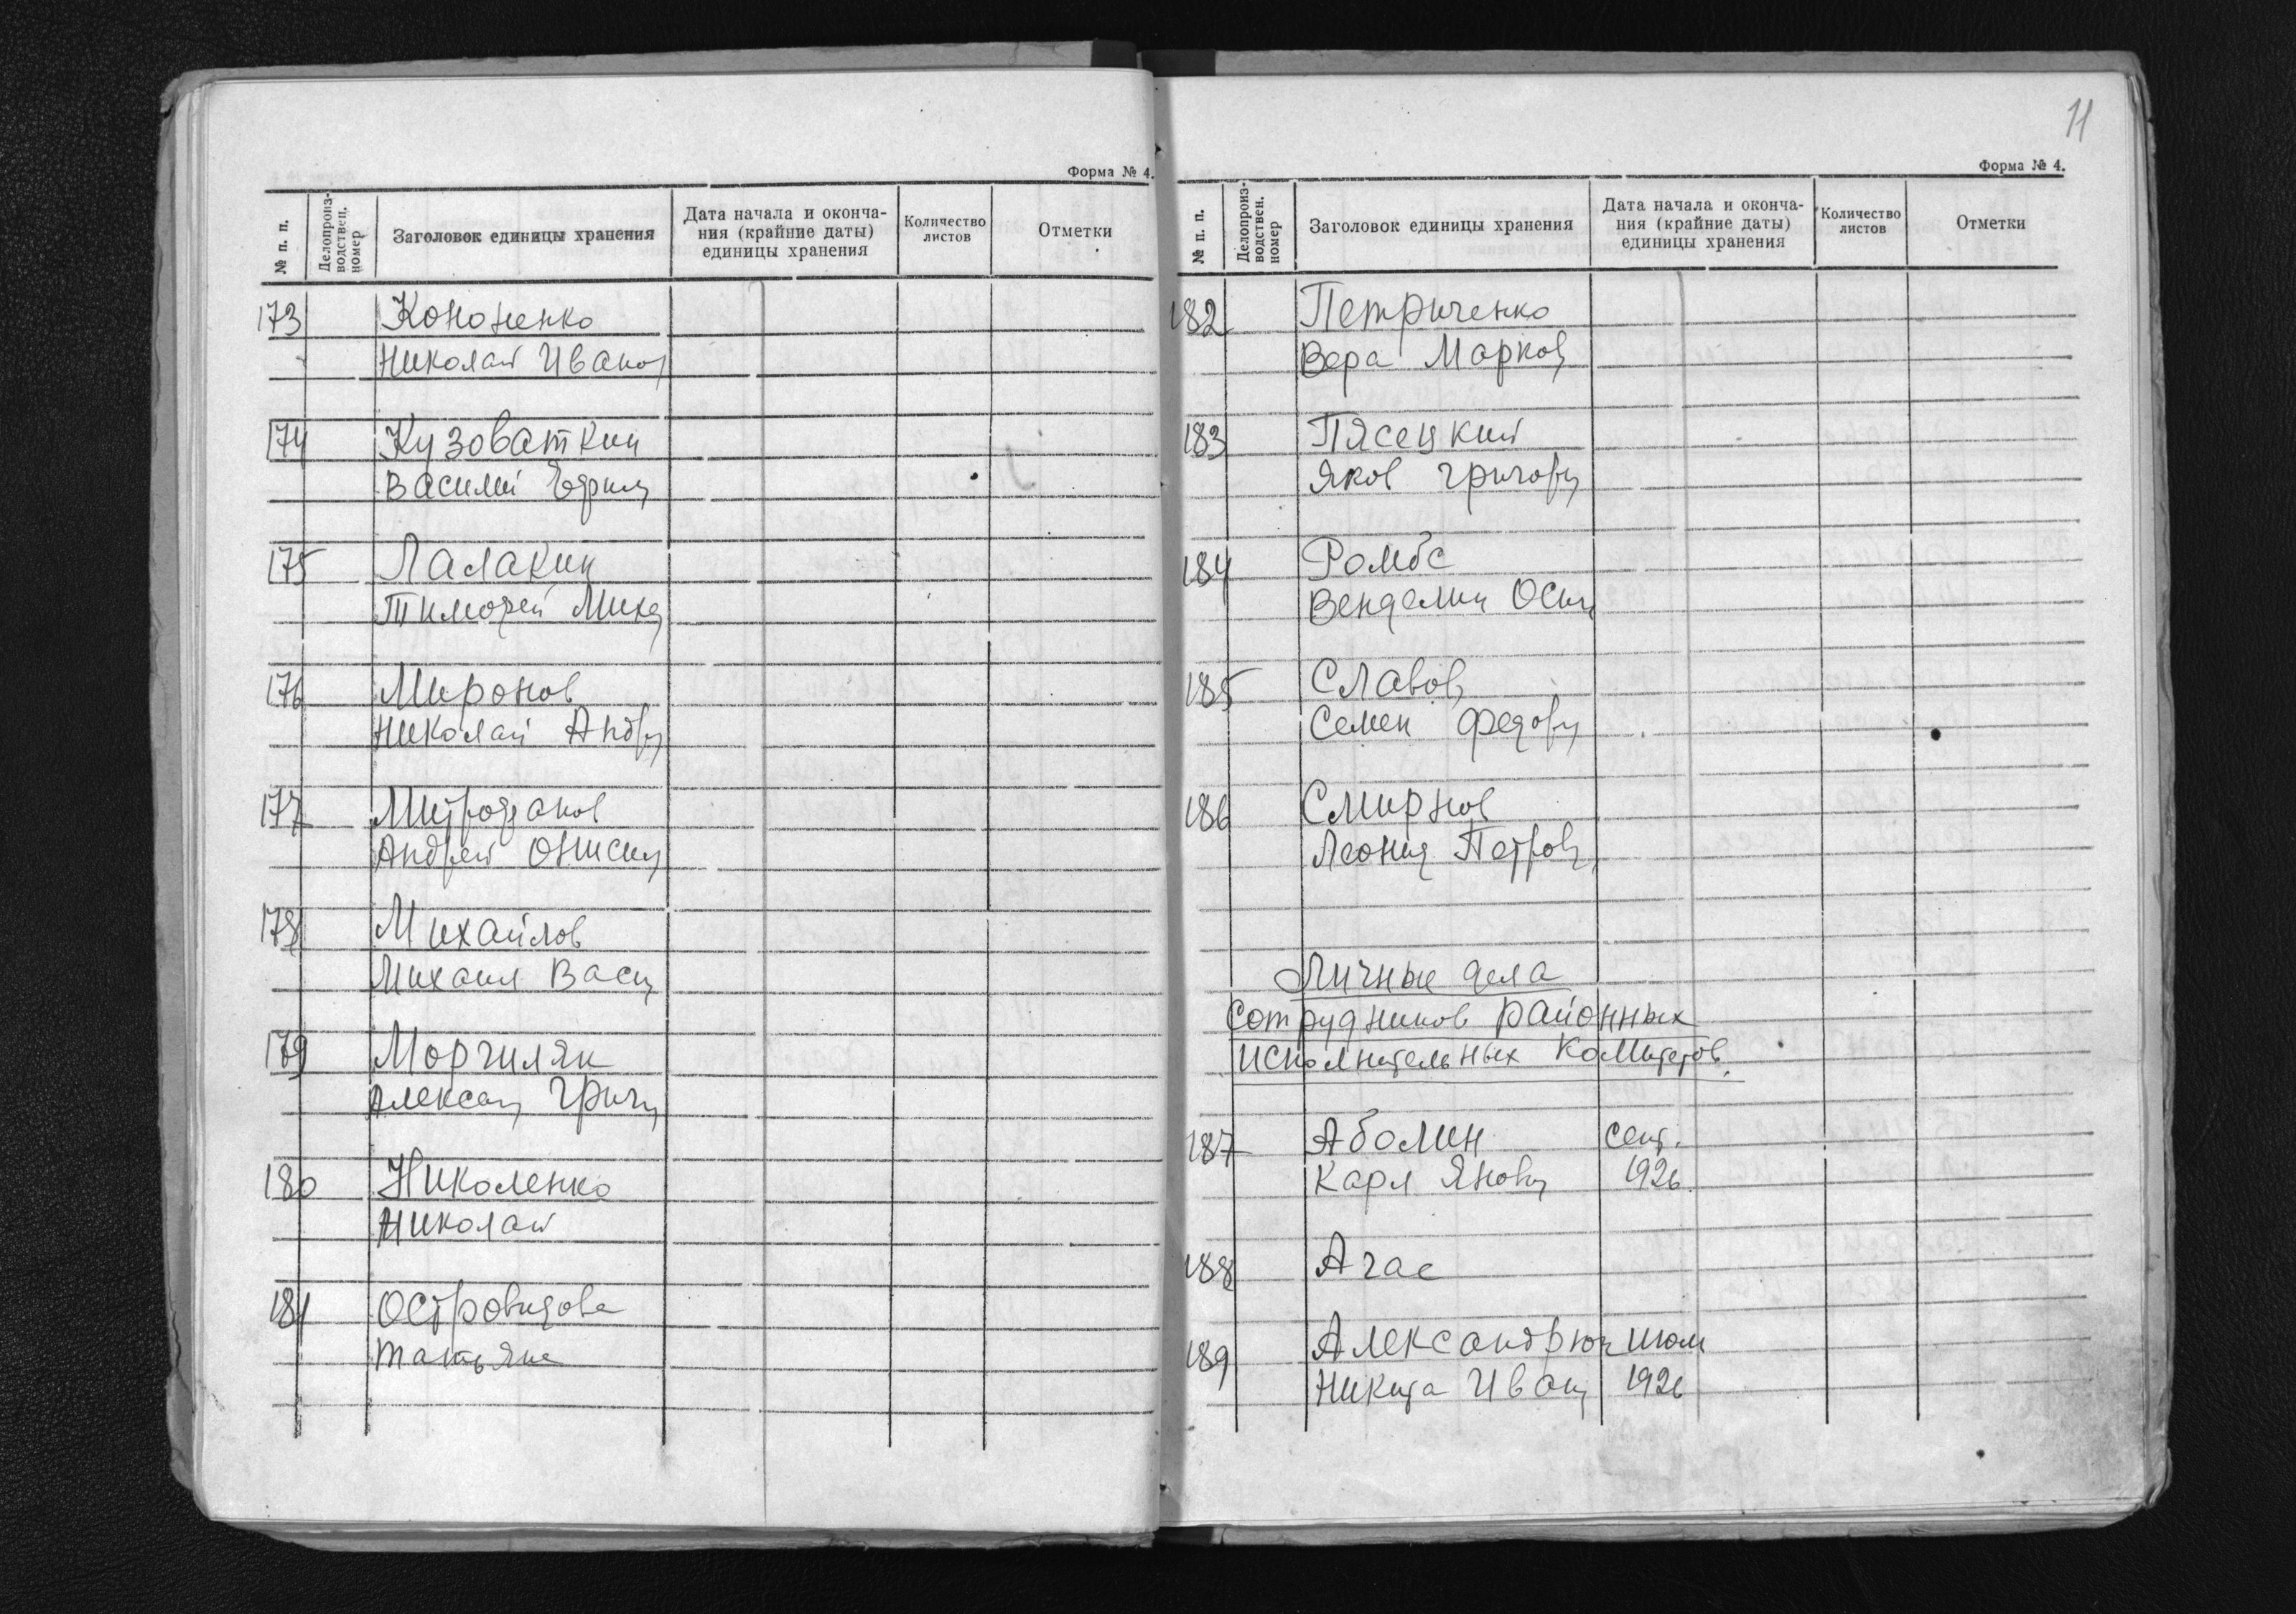 Форма № 4.
№ п. п.
Делопроиз-
водствен.
номер
Заголовок единицы хранения
Дата начала и оконча-
ния (крайние даты)
единицы хранения
Количество
листов
Отметки
173 Кононенко
Николай Иванов
174 Кузоваткин
Василий Ефим
175 Лалакин
Тимофей Миха
176 Миронов
Николай Андр
177 Митрофанов
Андрей Онисим
178 Михайлов
Михаил Васи
179 Моргиляк
Александ Григ
180 Николенко
Николай
181 Островидова
Татьяна
11
Форма № 4.
№ п. п.
Делопроиз-
водствен.
номер
Заголовок единицы хранения
Дата начала и оконча-
ния (крайние даты)
единицы хранения
Количество
листов
Отметки
182 Петриченко
Вера Марков
183 Пясецкий
Яков Григор
184 Ромбс
Венделин Осип
185 Славов
Семен Федор
186 Смирнов
Леонид Петров
Личные дела
сотрудников районных
исполнительных комитетов.
187 Аболин сент.
Карл Янов 1926.
188 Агас
189 Александрюк июль
Никита Иван 1926